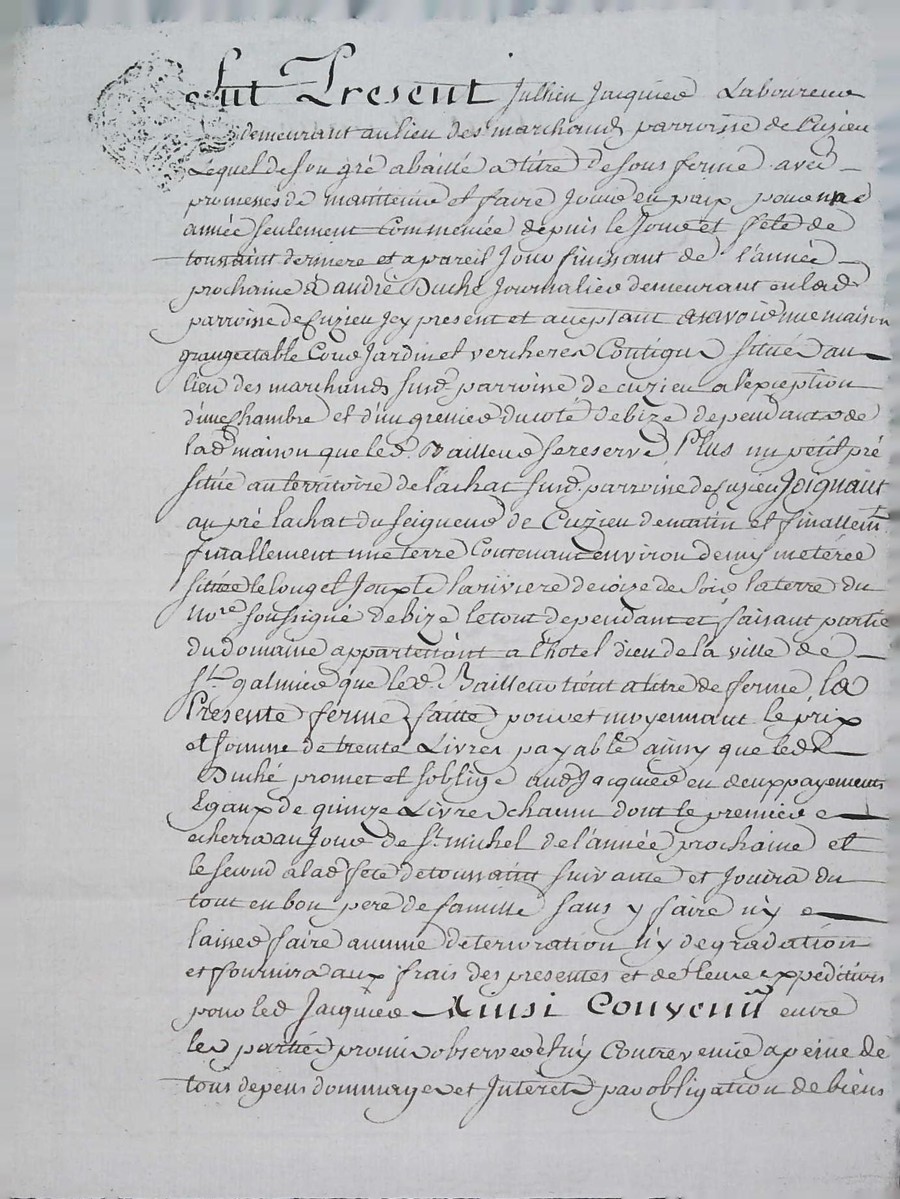 Fut Present Jullien Jacquier Laboureur
demeurant au lieu des marchand parroisse de Cuzieu
Lequel de son gré a baillé a titre de sous ferme avec
promesses de maintenir et faire Jouir en paix pour une
année seulement Commencée depuis le Jour et fete de
toussaint derniere et a pareil Jour finissant de l'année
prochaine a andré Duché Journalier demeurant en lad
parroisse de Cuzieu Jcy present et acceptant asavoir une maison
grange etable Cour Jardin et vercheres Contigus situés au
lieu des marchands susd. parroisse de cuzieu a l'exception
d'une Chambre et d'un grenier du coté de bize dependants de
lad maison que led. Bailleur se reserve, Plus un petit pré
situé au territoire de Lachat susd. parroisse de Cuzieu Joignant
au pré Lachat du seigneur de Cuzieu de matin et finallemt
finallement une terre Contenant environ demy meterée
située le long et Jouxte la riviere de coize de soir la terre du
No.re soussigné de bize le tout dependant et faisant partie
du domaine appartenant a l'hotel dieu de la ville de
St. galmier que led. Bailleur tient a titre de ferme, la
Presente ferme faitte pour et moyennant le prix
et somme de trente Livres payable ainsy que led
Duché promet et soblige aud Jacquier en deux payements
Egaux de quinze Livres chacun dont le premier
echerra au Jour de St michel de l'année prochaine et
le second a lad fete de toussaint suivante et Jouira du
tout en bon pere de famille sans y faire n'y
laisser faire aucune deterioration n'y degradation
et fournira aux frais des presentes et de leur expedition
pour led Jacquier Ainsi Convenu entre
les parties promis observer et n'y Contrevenir a peine de
tous depens dommages et Interets par obligation de biens